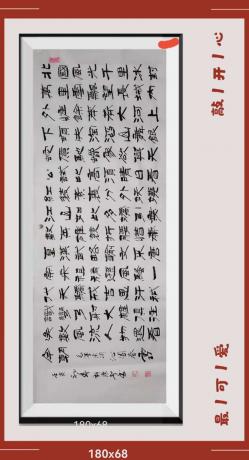 北國風光千里冰封
萬里雪飄望長城內
外惟餘莽莽大河上
下頓失滔滔山舞銀
蛇原馳蠟象欲與天
公試比高須晴日看
紅裝素裹分外妖嬈
江山如此多嬌引無
數英雄競折腰惜秦
皇漢武略輸文采唐
宗宋祖稍遜風騷一
代天驕成吉思汗只
識彎弓射大雕俱往
矣數風流人物還看
今朝
沁園春雪
敲/开/心
最/可/爱
180x68
180x68